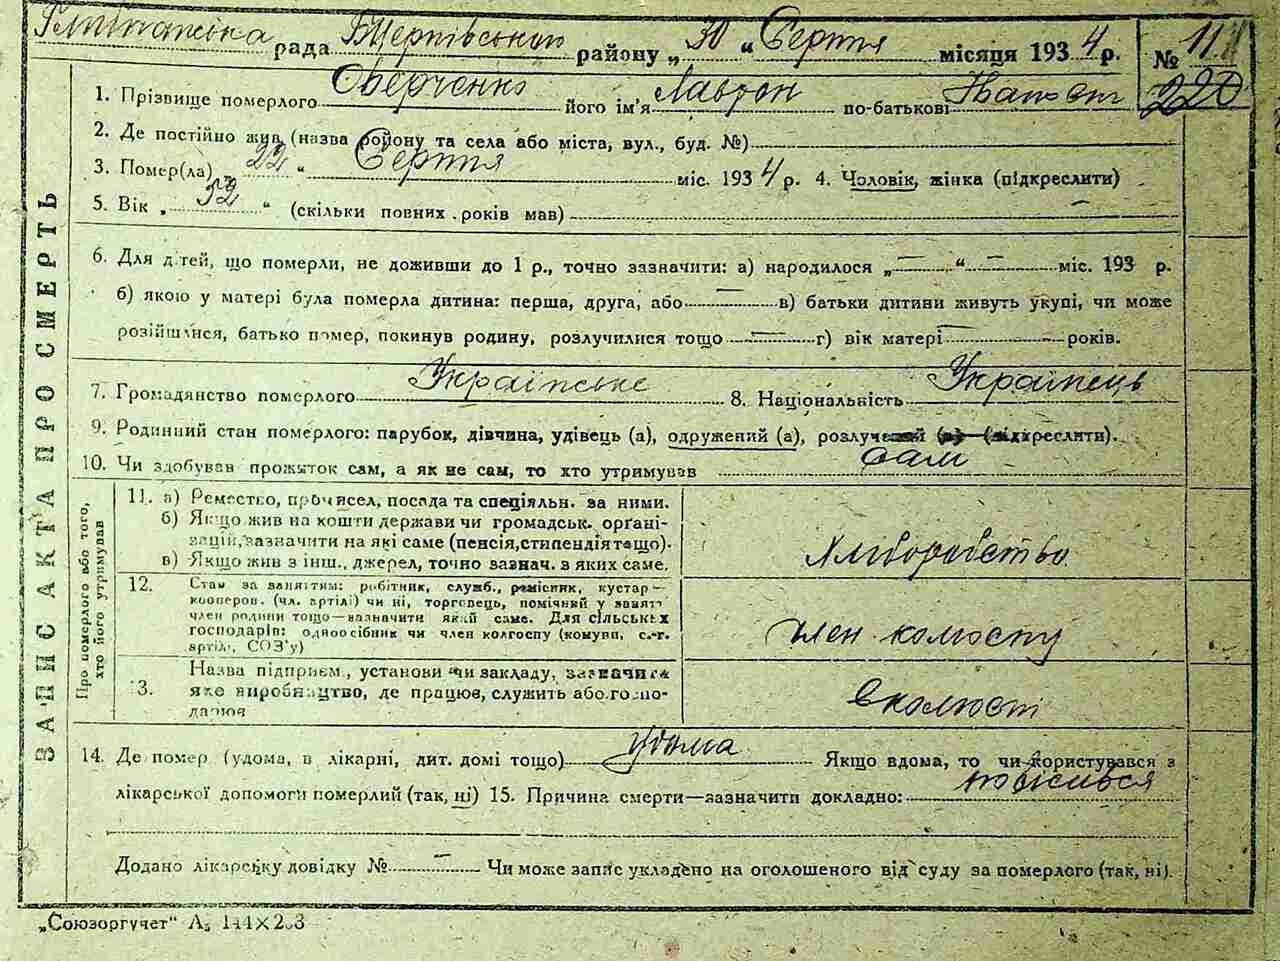 рада района „30“ Серпня місяця 1934 р. № 11
220
1. Прізвище померлого Оверченко його ім'я Лаврон по-батькові
2. Де постійно жив (назва району та села або міста, вул., буд. №)
3. Помер(ла) „22“ Серпня міс. 1934 р. 4. Чоловік, жінка (підкреслити)
5. Вік „52“ (скільки повних років мав) —
6. Для дітей, що померли, не доживши до 1 р., точно зазначити: а) народилося „—“ — міс. 193 р.
б) якою у матері була померла дитина: перша, друга, або — в) батьки дитини живуть укупі, чи може
розійшлися, батько помер, покинув родину, розлучилися тощо — г) вік матері — років.
7. Громадянство померлого Українське 8. Національність Українець
9. Родинний стан померлого: парубок, дівчина, удівець (а), одружений (а), розлучений (а) (підкреслити).
10. Чи здобував прожыток сам, а як не сам, то хто утримував сам
ЗАПИС АКТА ПРО СМЕРТЬ
Про померлого або того,
хто його утримував
11. а) Ремество, проф. посада та спеціяльн. за ними.
б) Якщо жив на кошти держави чи громадськ. орґані-
зацій, зазначити на які саме (пенсія, стипендія тощо).
в) Якщо жив з інш. джерел, точно зазнач. з яких саме.
Хліборобство
12. Стан за заняттям: робітник, служб., ремісник, кустар—
кооперов. (чл. артілі) чи ні, торговець, помічний у занят.
член родини тощо—зазначити який саме. Для сільських
господарів: одноосібник чи член колгоспу (комуни, с.-г.
артілі, СОЗ'у)
член колгоспу
13. Назва підприєм., установи чи закладу, зазначити
яке виробництво, де працює, служить або госпо-
дарює
В колгоспі
14. Де помер (удома, в лікарні, дит. домі тощо) удома Якщо вдома, то чи користувався з
лікарської допомоги померлий (так, ні) 15. Причина смерти—зазначити докладно: повісився
Додано лікарську довідку № — Чи може запис укладено на оголошеного від суду за померлого (так, ні).
„Союзоргучет“ А₅ 144×203